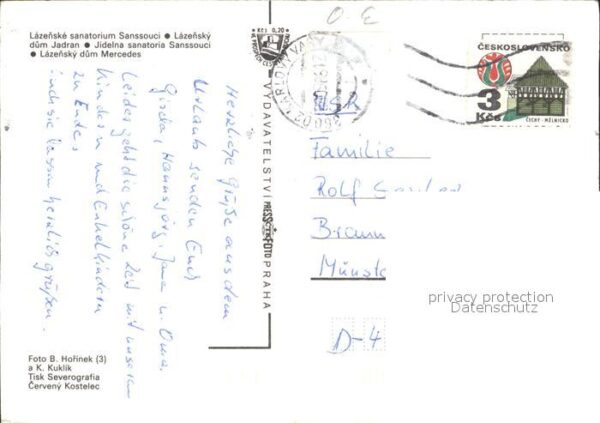 Lázeňské sanatorium Sanssouci ● Lázeňský
dům Jadran ● Jídelna sanatoria Sanssouci
● Lázeňský dům Mercedes
Kčs 0,20
Herzliche Grüße aus dem
Urlaub senden Euch
Gerda, Hannsjörg, Jana u. Oma.
Leider geht die schöne Zeit mit unseren
Kindern und Enkelkindern
zu Ende,
und sie lassen herzlich grüßen.
VYDAVATELSTVÍ PRESSFOTO PRAHA
KARLOVY VARY
O-E
ČESKOSLOVENSKO
3 Kčs
ČECHY - MĚLNICKO
Familie
Rolf
Braun
Münste
D-4
privacy protection
Datenschutz
Foto B. Hořínek (3)
a K. Kuklík
Tisk Severografia
Červený Kostelec